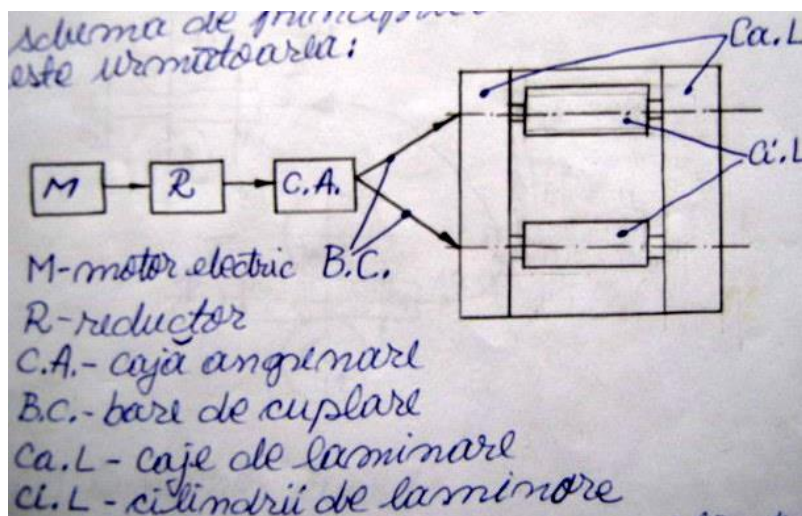 schema de
este urmatoarea:
Ca.L
Ci.L
M
R
C.A.
B.C.
M-motor electric
R-reductor
C.A.- cajă angrenare
B.C.- bare de cuplare
Ca.L - caje de laminare
Ci.L - cilindrii de laminare